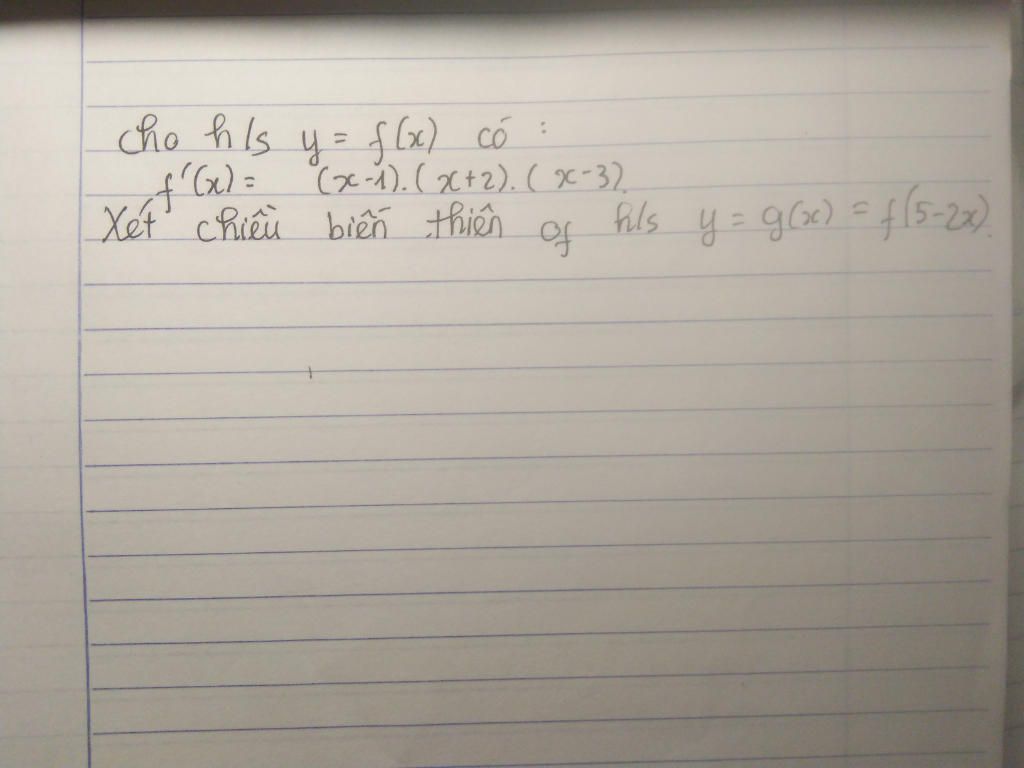 Cho h/s y = f(x) có :
f'(x) = (x-1).(x+2).(x-3).
Xét chiều biến thiên of h/s y = g(x) = f(5-2x).